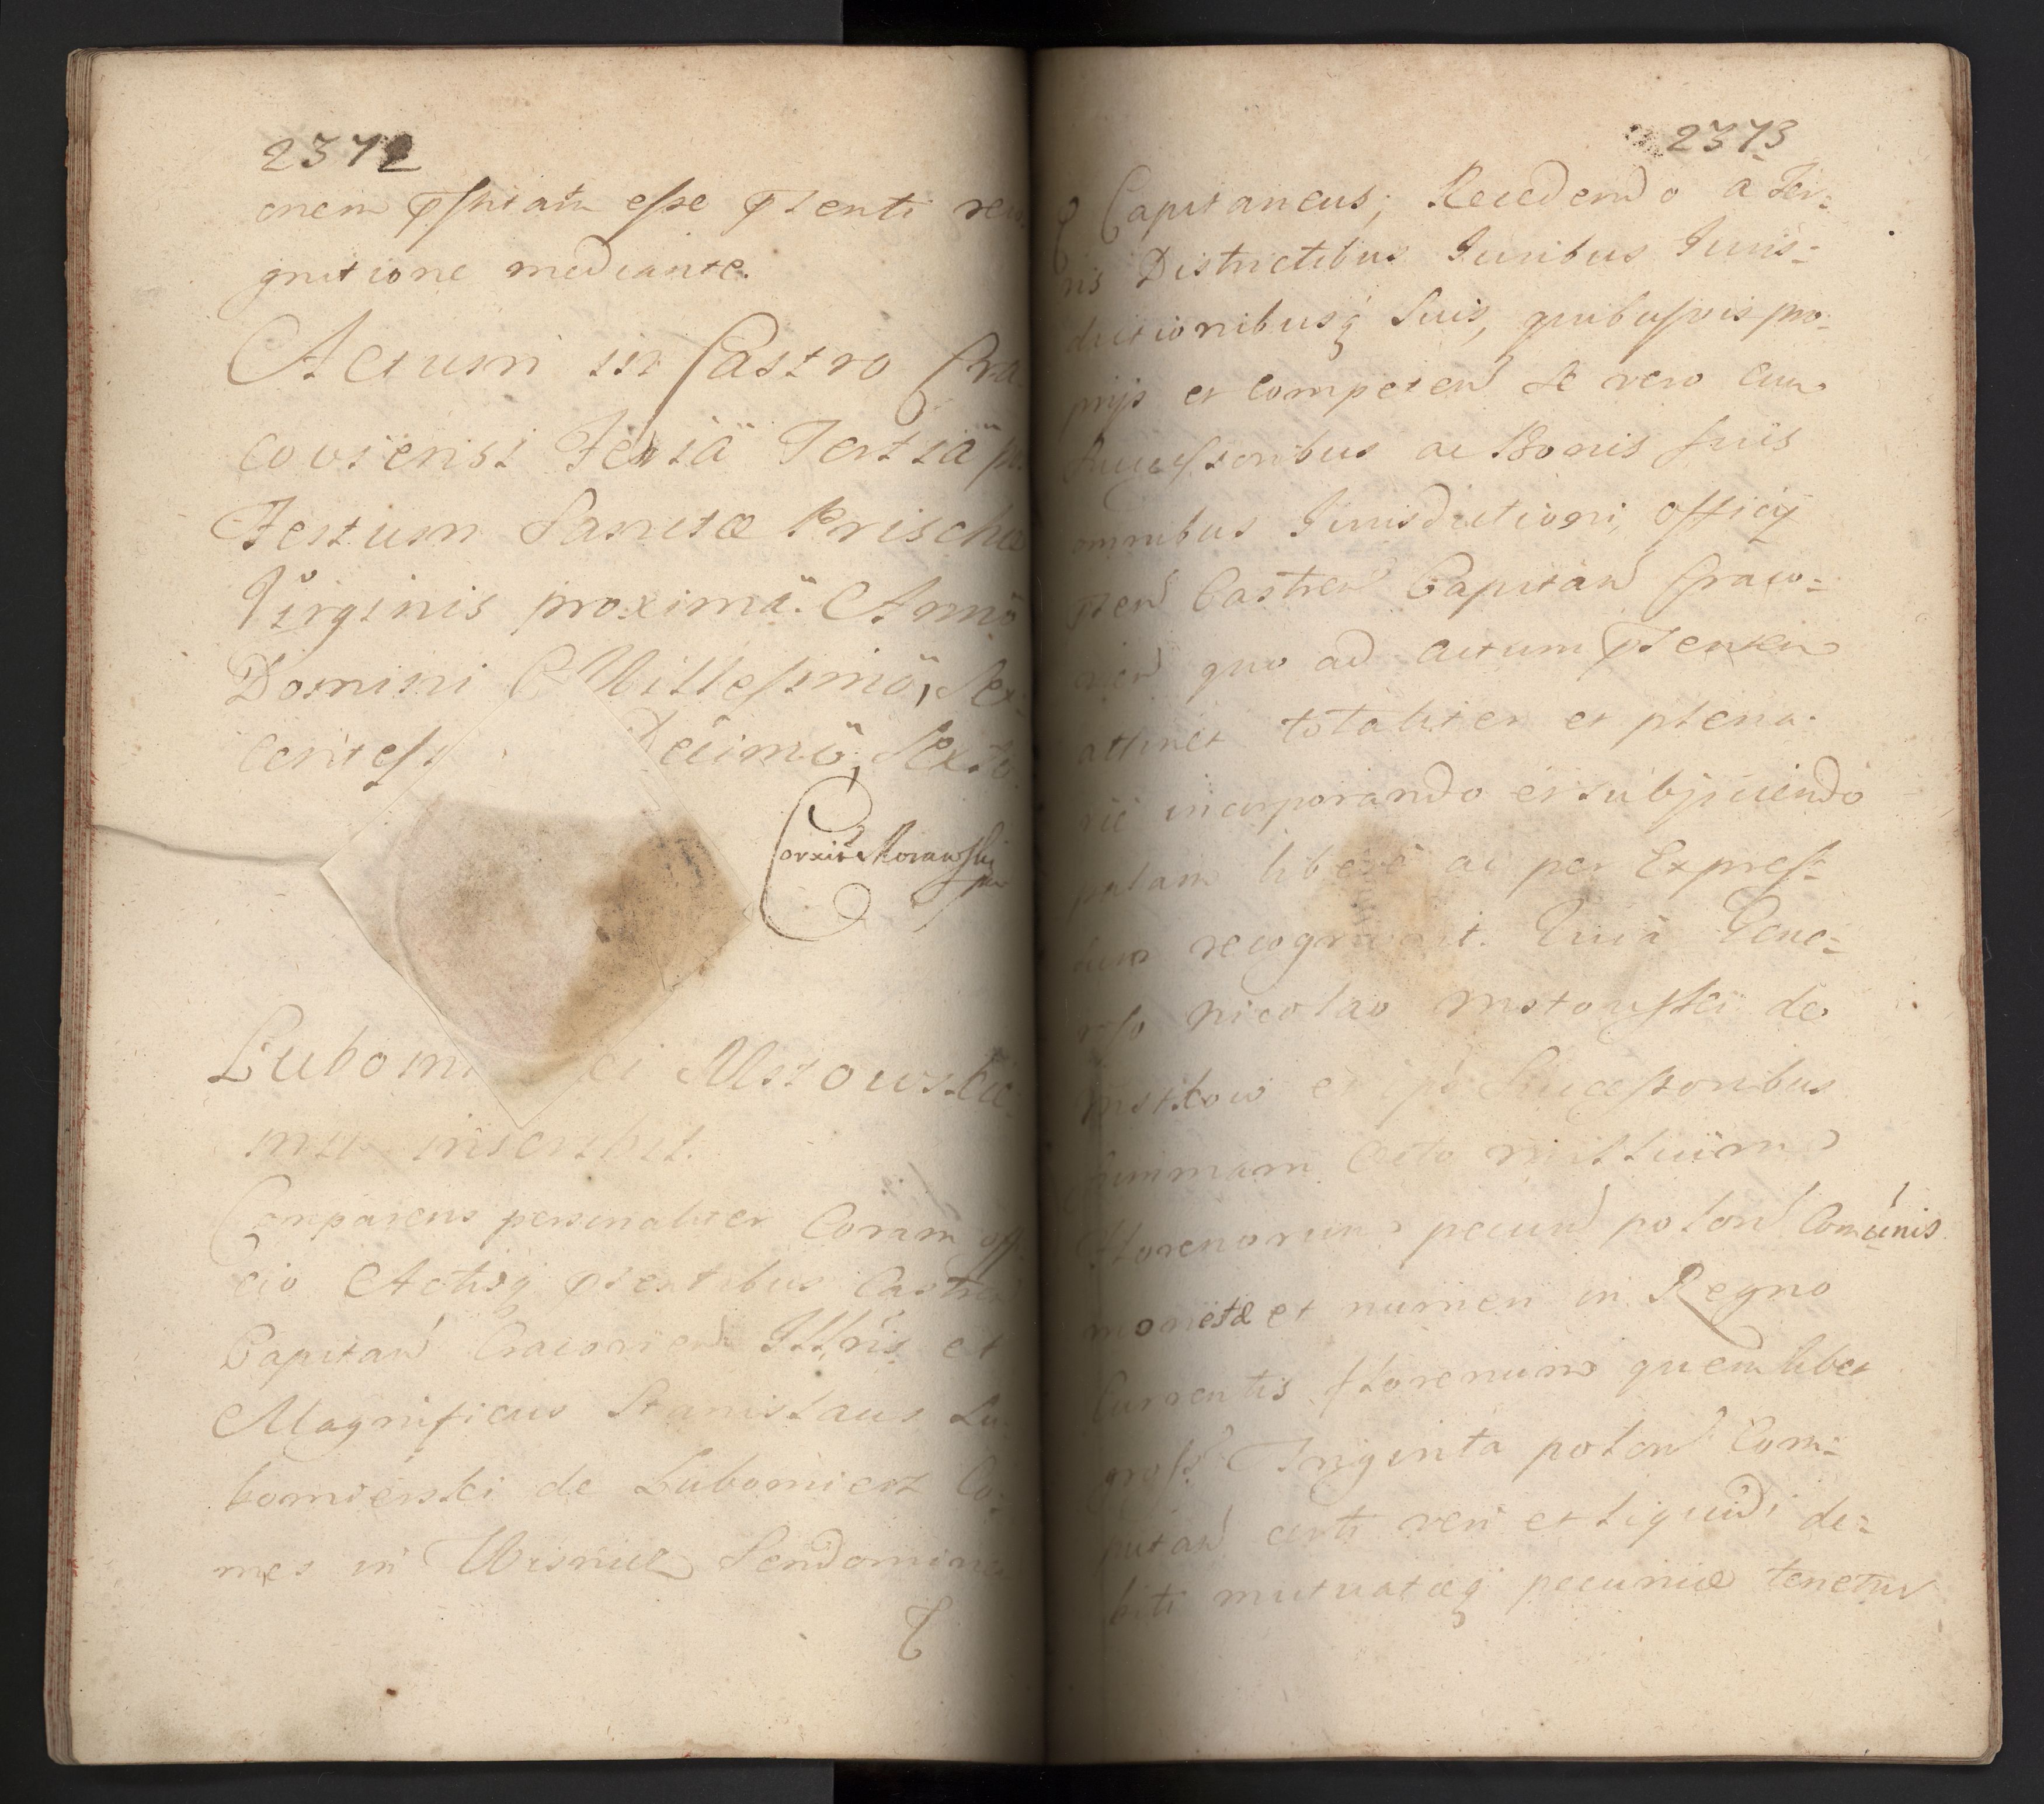 2372
onem pstitam esse pntenti reco
gnitione mediante.
Actum in Castro Cra
coviensi Feria Tertia
Festum Sanctæ Prischæ
Virginis proximä. Annö
Domini Millesimö, Sex
centes Decimö Sexto
Corrixit Morawski
Lubomi ski Mstowskie
mu inscribit.
Comparens personaliter Coram offi
cio Actisq pntentibus Castren
Capitan Cracovien Illris et
Magnificus Stanislaus Lu
bomierski de Lubomierz Co:
mes in Wisnicz Sendomirien
&
2373
& Capitaneus; Recedendo a Ter:
ris Districtibus Juribus Juris:
dictionibusq Suis, quibusvis pro
prijs et competen Se vero cum
Successoribus ac Bonis suis
omnibus Jurisdictioni, officij
pnten Castren Capitan Craco:
vien quo ad actum pntentem
attinet totaliter et plena.
rie incorporando et subjiciendo
palam libere ac per Expres
sum recognovit. Quia Gene:
roso Nicolao Mstowski de
Mstow et ips Successoribus
summam Octo millium
florenorum pecun polon Comunis
monetæ et numeri in Regno
Currentis florenum quemlibet
gross Triginta polon Com:
putan certi veri et liquidi de:
biti mutuatæq pecuniæ tenetur